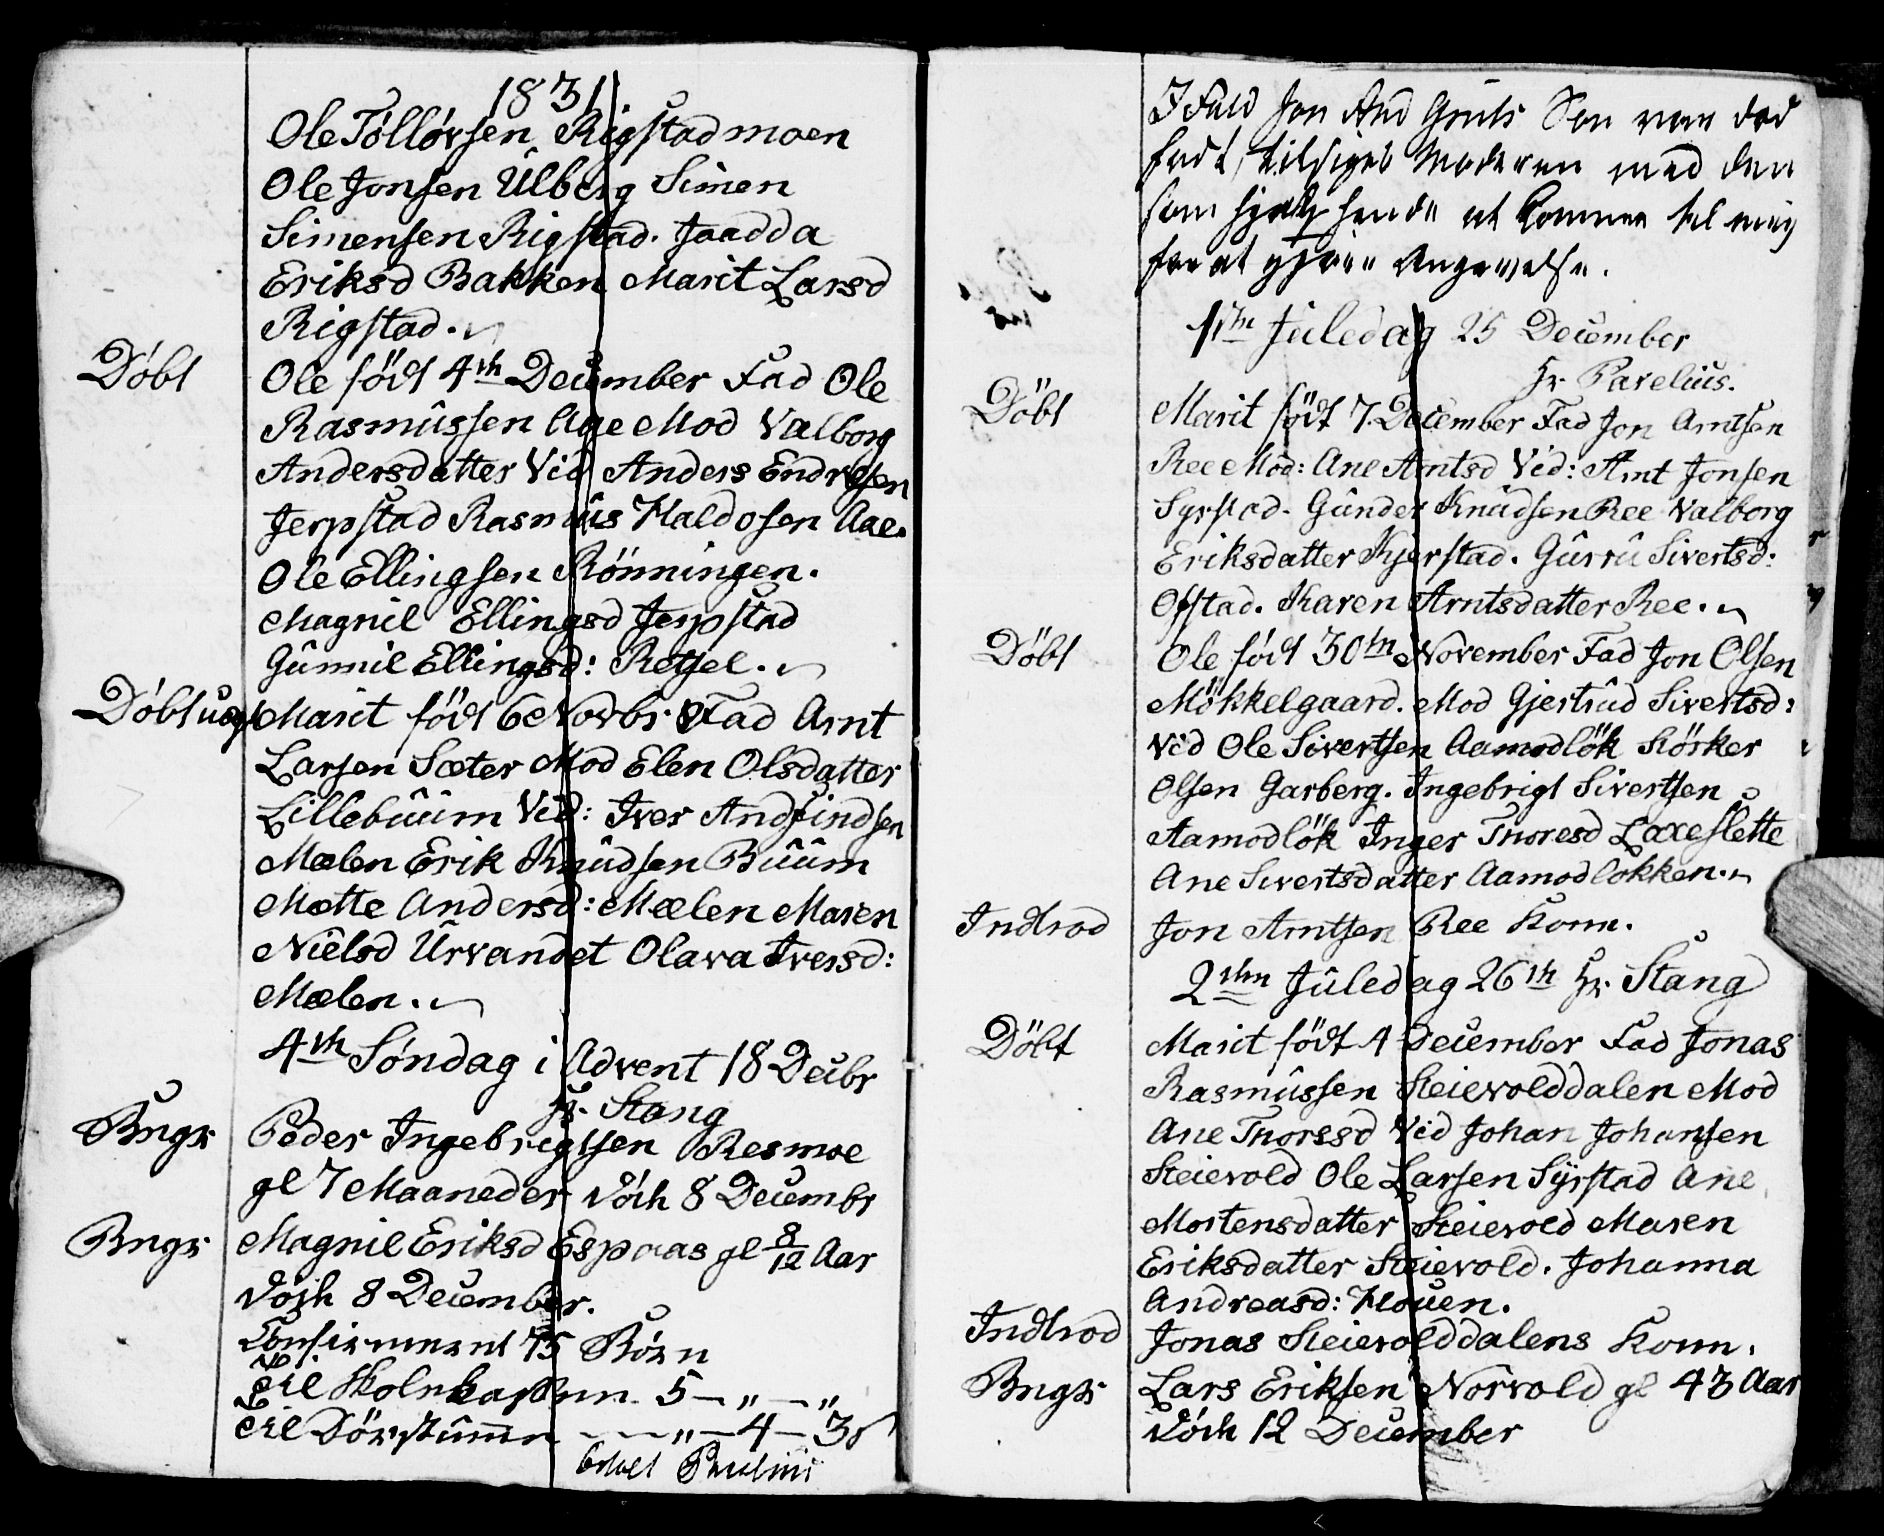 1831
Ole Tøllørsen Rigstadmoen
Ole Jonsen Ülberg Simen
Simensen Rigstad. Jaadda
Eriksd Bakken Marit Larsd
Rigstad.
Döbt Ole födt 4th December Fad Ole
Rasmûssen Aae Mod Valborg
Andersdatter Vid Anders Endresen
Jerpstad Rasmûs Haldosen Aae.
Ole Ellingsen Rönningen.
Magnil Ellingsd Jerpstad
Gûnnil Ellingsd: Retsel.
Döbt Marit födt 6 Novbr Fad Arnt
Larsen Sæter Mod Elen Olsdatter
Lillebûûm Vid: Iver Andfindsen
Mælen Erik Knûdsen Bûûm
Mette Andersd: Mælen Maren
Nielsd Ûrvandet Olava Iversd:
Mælen.
4th Søndag i Advent 18 Decbr
Hr. Stang
Bngr Peder Ingebrigtsen Resmoe
gl 7 Maaneder död 8 Decembr
Bngr Magnil Eriksd Espaas gl 8/12 Aar
död 8 December.
Confirmeret 75 Börn
til Skolekassen 5 — „ — „
til — „ — 4 — 38
betalt
I Fald Jon And Grüts Søn var død
født, tilsiges Moderen med den
som hjalp hende at komme til mig
for at gjøre Angivelse.
1ste Jüledag 25 December
Hr. Parelius.
Döbt Marit födt 7 December Fad Jon Arntsen
Ree Mod: Ane Arntsd Vid: Arnt Jonsen
Syrstad. Gûnder Knûdsen Ree Valborg
Eriksdatter Kjerstad. Gûrrû Sivertsd:
Ofstad. Karen Arntsdatter Ree.
Döbt Ole födt 30th November Fad Jon Olsen
Mökkelgaard. Mod Gjertrûd Sivertsd:
Vid Ole Sivertsen Aamodlök Störker
Olsen Garberg. Ingebrigt Sivertsen
Aamodlök Inger Thoresd Laxeslette
Ane Sivertsdatter Aamodlökken.
Indtrod Jon Arntsen Ree Konn.
2den Jüledag 26th Hr. Stang
Döbt Marit födt 4 December Fad Jonas
Rasmûssen Steievolddalen Mod
Ane Thoresd Vid Johan Johansen
Steievold Ole Larsen Syrstad Ane
Mortensdatter Steievold Maren
Eriksdatter Steievold. Johanna
Andreasd: Hoüen.
Indtrod Jonas Steievolddalens Konn.
Bngr Lars Eriksen Norvold gl 43 Aar
död 12 December